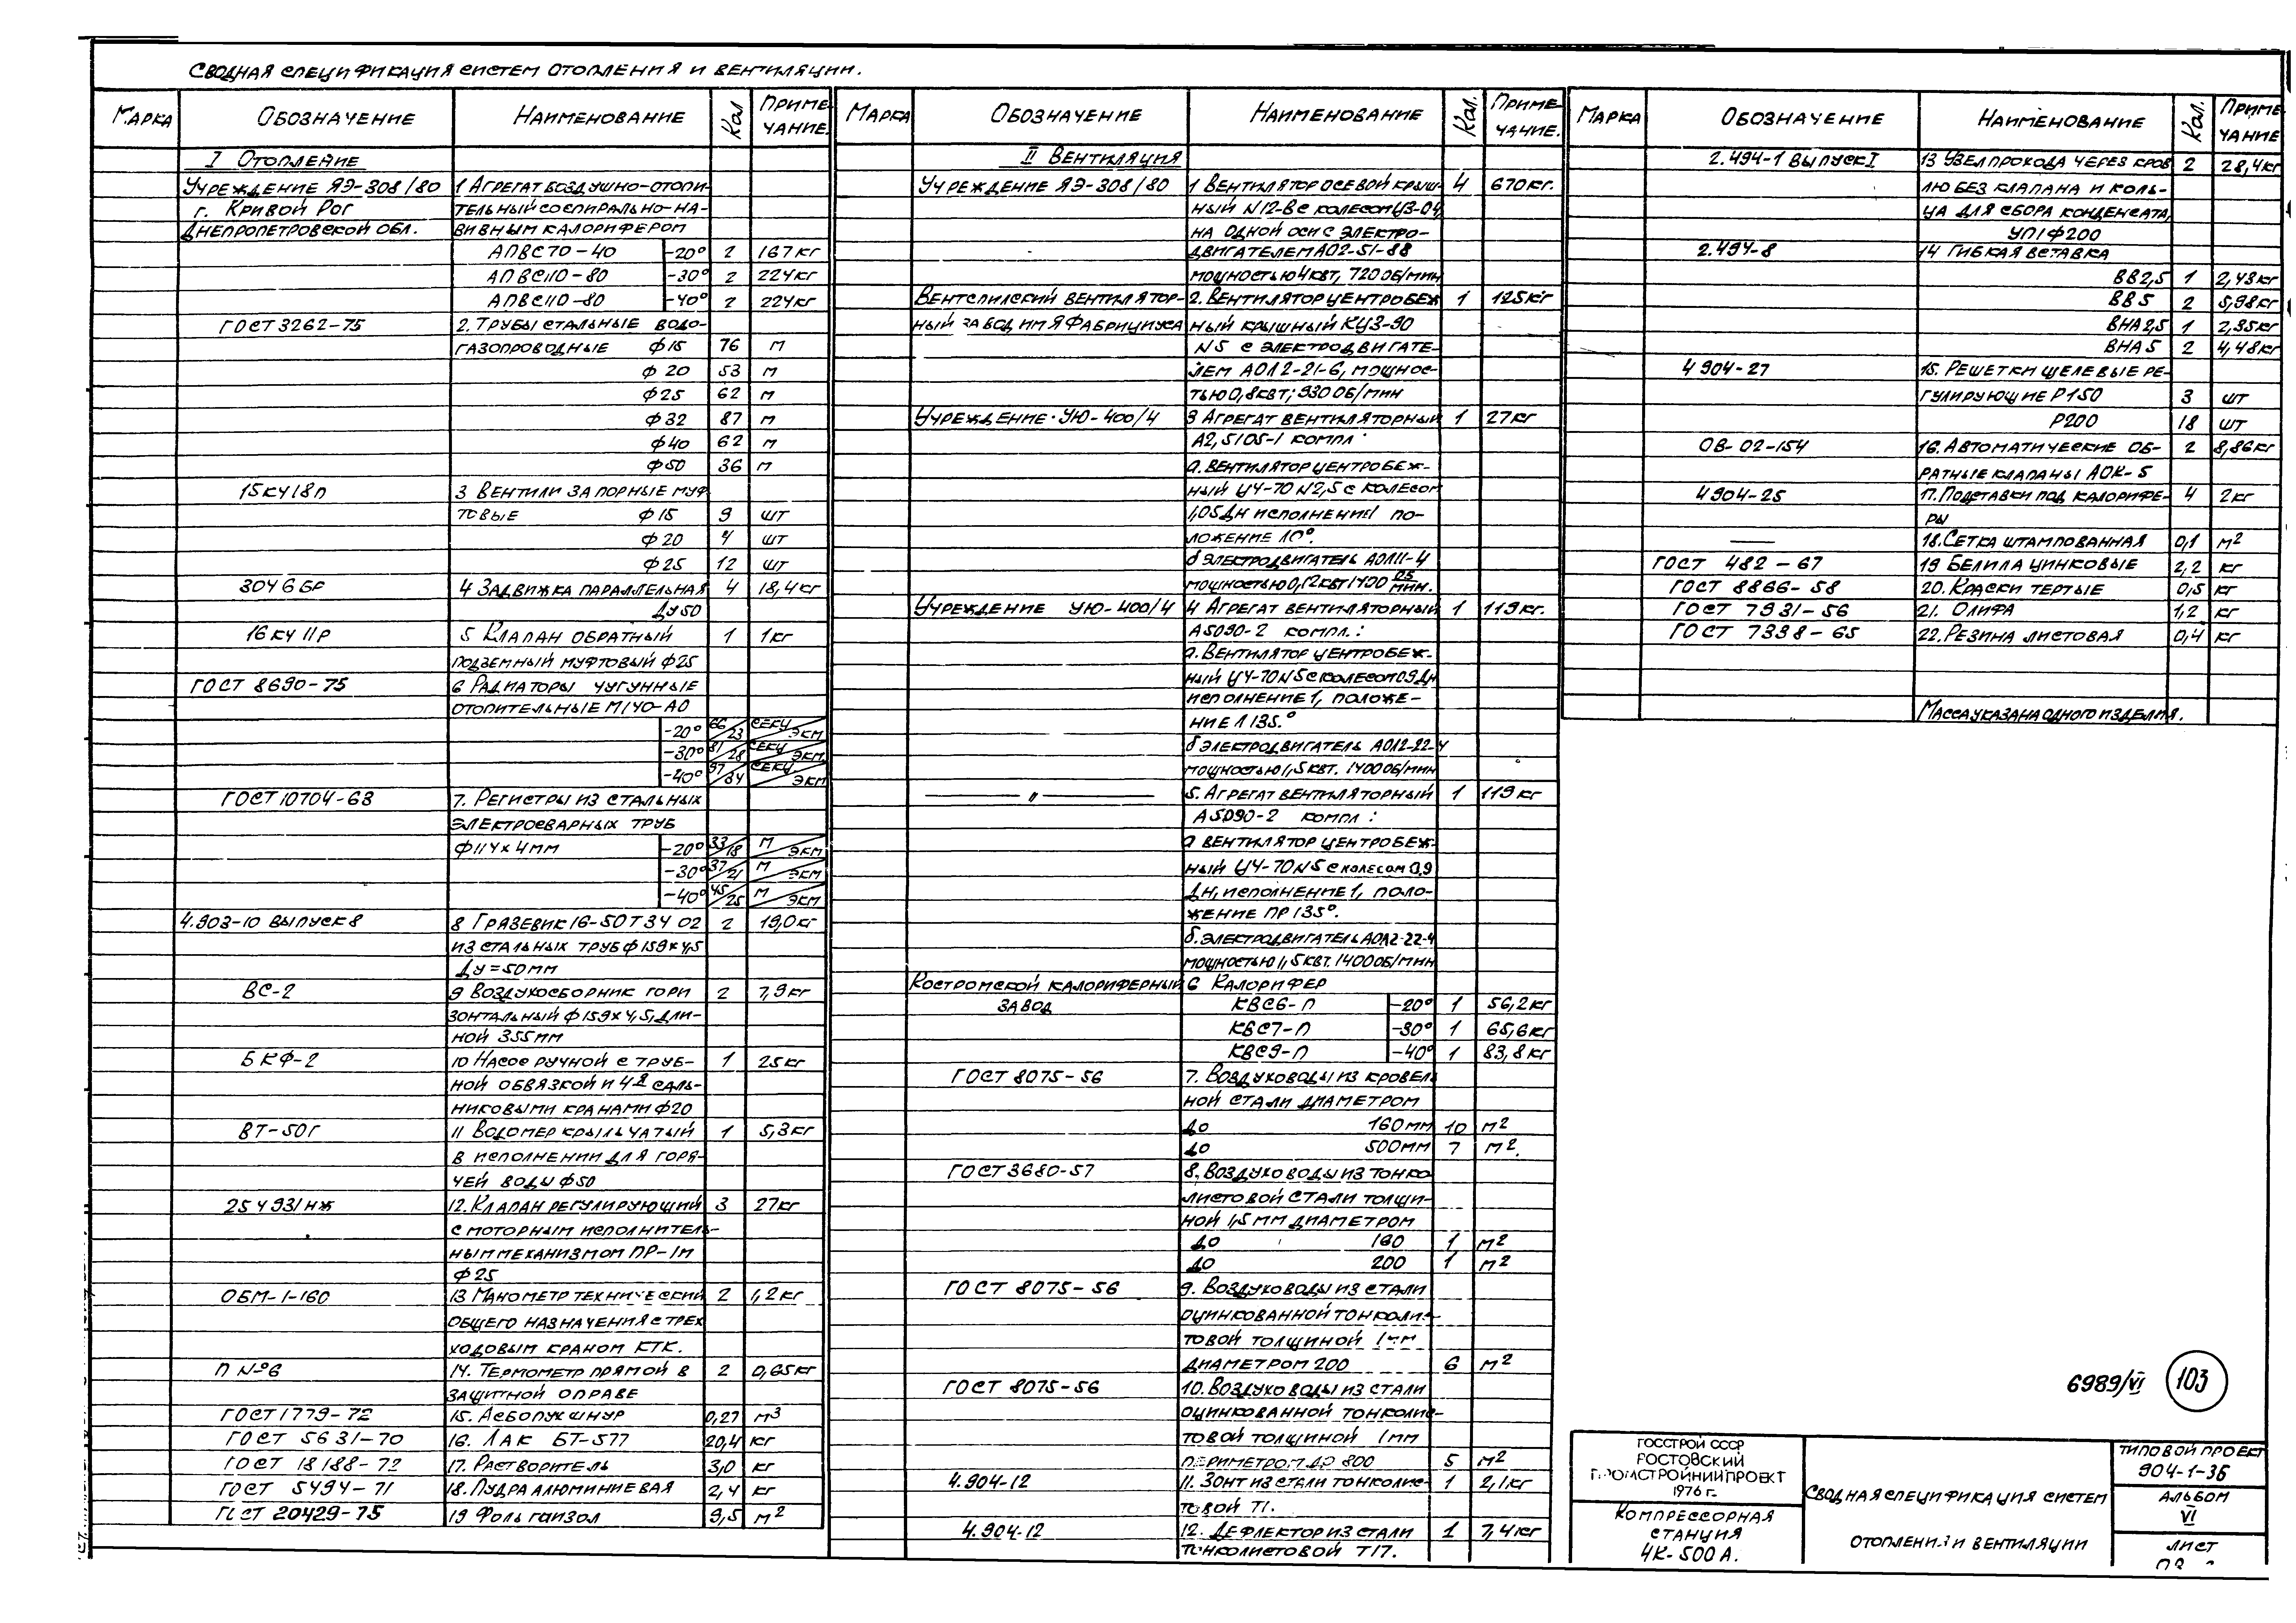 Сводная спецификация систем отопления и вентиляции.
Марка Обозначение Наименование Кол Приме-
чание.
I Отопление
Учреждение ЯЭ-308/80 1 Агрегат воздушно-отопи-
г. Кривой Рог тельный со спирально-на-
Днепропетровской обл. вивным калорифером
АПВС70-40 -20° 2 167кг
АПВС110-80 -30° 2 224кг
АПВС110-80 -40° 2 224кг
ГОСТ 3262-75 2. Трубы стальные водо-
газопроводные ф15 76 м
ф20 53 м
ф25 62 м
ф32 87 м
ф40 62 м
ф50 36 м
15кч18п 3 Вентили запорные муф
товые ф15 9 шт
ф20 4 шт
ф25 12 шт
30ч6бр 4 Задвижка параллельная 4 18,4кг
Ду50
16кч11р 5 Клапан обратный 1 1кг
подземный муфтовый ф25
ГОСТ 8690-75 6 Радиаторы чугунные
отопительные М140-АО
-20° 66/23 секц/экм
-30° 81/28 секц/экм
-40° 97/34 секц/экм
ГОСТ 10704-63 7. Регистры из стальных
электросварных труб
ф114х4мм -20° 33/18 м/экм
-30° 37/21 м/экм
-40° 45/25 м/экм
4.903-10 выпуск 8 8 Грязевик 16-50Т34 02 2 19,0кг
из стальных труб ф159х4,5
Ду=50мм
ВС-2 9 Воздухосборник гори 2 7,9кг
зонтальный ф159х4,5, дли-
ной 355мм
БКФ-2 10 Насос ручной с труб- 1 25кг
ной обвязкой и 4я саль-
никовыми кранами ф20
ВТ-50г 11 Водомер крыльчатый 1 5,3кг
в исполнении для горя-
чей воды ф50
25ч931нж 12. Клапан регулирующий 3 27кг
с моторным исполнитель-
ным механизмом ПР-1м
ф25
ОБМ-1-160 13 Манометр технический 2 1,2кг
общего назначения с трех
ходовым краном КТК.
П №6 14. Термометр прямой в 2 0,65кг
защитной оправе
ГОСТ 1779-72 15. Асбопухшнур 0,27 м3
ГОСТ 5631-70 16. Лак БТ-577 20,4 кг
ГОСТ 18188-72 17. Растворитель 3,0 кг
ГОСТ 5494-71 18. Пудра алюминиевая 2,4 кг
ГОСТ 20429-75 19 Фольгоизол 9,5 м2
Марка Обозначение Наименование Кол. Приме-
чание.
II Вентиляция
Учреждение ЯЭ-308/80 1 Вентилятор осевой крыш- 4 670кг.
ный N12-Вс колесом ЦЗ-04,
на одной оси с электро-
двигателем АО2-51-88
мощностью 4квт, 720об/мин
Вентспилский вентилятор- 2. Вентилятор центробеж 1 125кг
ный завод им Я Фабрициуса ный крышный КЦ3-90
N5 с электродвигате-
лем АОЛ2-21-6, мощнос-
тью 0,8квт; 930об/мин
Учреждение УЮ-400/4 3 Агрегат вентиляторный 1 27кг
А2,5105-1 компл
а. Вентилятор центробеж-
ный Ц4-70 N2,5 с колесом
1,05Дн исполнение 1 по-
ложение Л0°.
б Электродвигатель АОЛ11-4
мощностью 0,12квт 1400 об/мин.
Учреждение УЮ-400/4 4 Агрегат вентиляторный 1 119кг.
А5090-2 компл.:
а. Вентилятор центробеж-
ный Ц4-70 N5 с колесом 0,9Дн
исполнение 1, положе-
ние Л135.°
б Электродвигатель АОЛ2-22-4
мощностью 1,5квт. 1400об/мин
— " — 5. Агрегат вентиляторный 1 119кг
А5090-2 компл:
а вентилятор центробеж-
ный Ц4-70 N5 с колесом 0,9
Дн, исполнение 1, поло-
жение ПР135°.
б. электродвигатель АОЛ2-22-4
мощностью 1,5квт. 1400об/мин
Костромской калориферный 6 Калорифер
завод КВС6-п -20° 1 56,2кг
КВС7-п -30° 1 65,6кг
КВС9-п -40° 1 83,8кг
ГОСТ 8075-56 7. Воздуховоды из кровель
ной стали диаметром
до 160мм 10 м2
до 500мм 7 м2.
ГОСТ 3680-57 8. Воздуховоды из тонко
листовой стали толщи-
ной 1,5мм диаметром
до 160 1 м2
до 200 1 м2
ГОСТ 8075-56 9. Воздуховоды из стали
оцинкованной тонколис-
товой толщиной 1мм
диаметром 200 6 м2
ГОСТ 8075-56 10. Воздуховоды из стали
оцинкованной тонколис-
товой толщиной 1мм
периметром до 800 5 м2
4.904-12 11. Зонт из стали тонколис- 1 2,1кг
товой Т1.
4.904-12 12. Дефлектор из стали 1 7,4кг
тонколистовой Т17.
Марка Обозначение Наименование Кол. Приме-
чание
2.494-1 выпуск I 13 Узел прохода через кров 2 28,4кг
лю без клапана и коль-
ца для сбора конденсата,
УП1ф200
2.494-8 14 Гибкая вставка
ВВ2,5 1 2,43кг
ВВ5 2 5,98кг
ВНА2,5 1 2,35кг
ВНА5 2 4,48кг
4 904-27 15. Решетки щелевые ре-
гулирующие Р150 3 шт
Р200 18 шт
ОВ-02-154 16. Автоматические об- 2 8,86кг
ратные клапаны АОК-5
4904-25 17. Подставки под калорифе- 4 2кг
ры
— 18. Сетка штампованная 0,1 м2
ГОСТ 482-67 19 Белила цинковые 2,2 кг
ГОСТ 8866-58 20. Краски тертые 0,5 кг
ГОСТ 7931-56 21. Олифа 1,2 кг
ГОСТ 7338-65 22. Резина листовая 0,4 кг
Масса указана одного изделия.
6989/VI 103
Госстрой СССР
Ростовский
Промстройниипроект
1976г.
Компрессорная
станция
4К-500А.
Сводная спецификация систем
отопления и вентиляции
Типовой проект
904-1-36
Альбом
VI
Лист